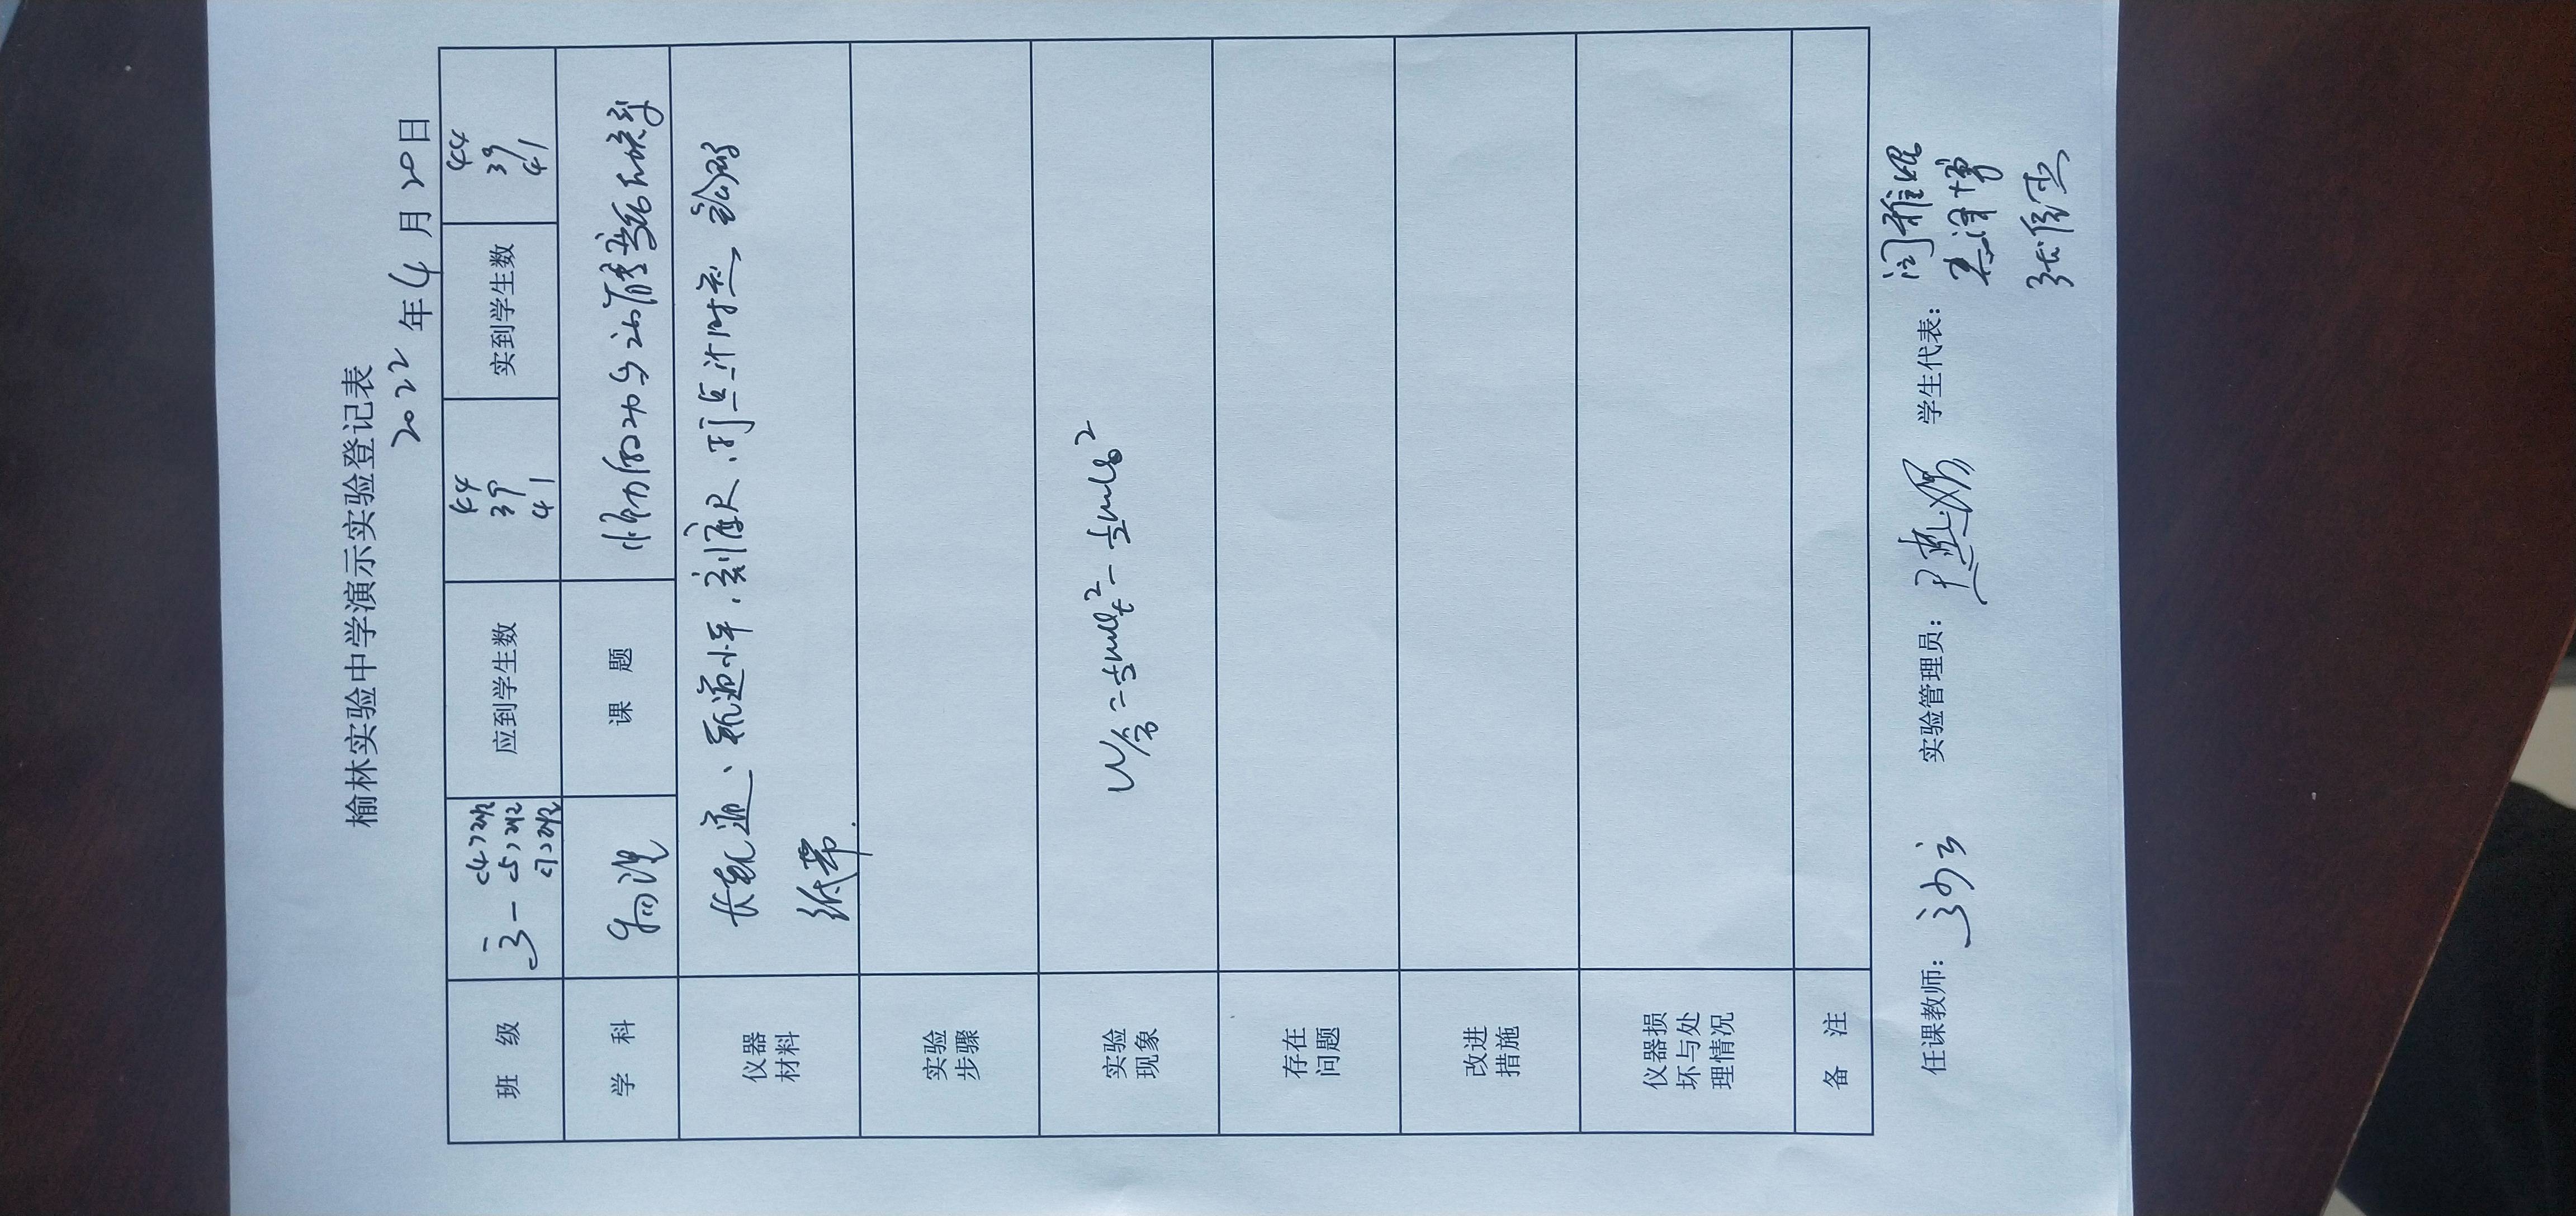 榆林实验中学演示实验登记表
2022 年 4 月 20 日
班 级 高一 (4)班 (5)班 (7)班 应到学生数 44 39 41 实到学生数 44 39 41
学 科 物理 课 题
仪器材料 长轨道、轨道小车、刻度尺、打点计时器、
纸带.
实验步骤
实验现象 W合=½mvt²-½mv0²
存在问题
改进措施
仪器损坏与处理情况
备 注
任课教师: 实验管理员: 学生代表: